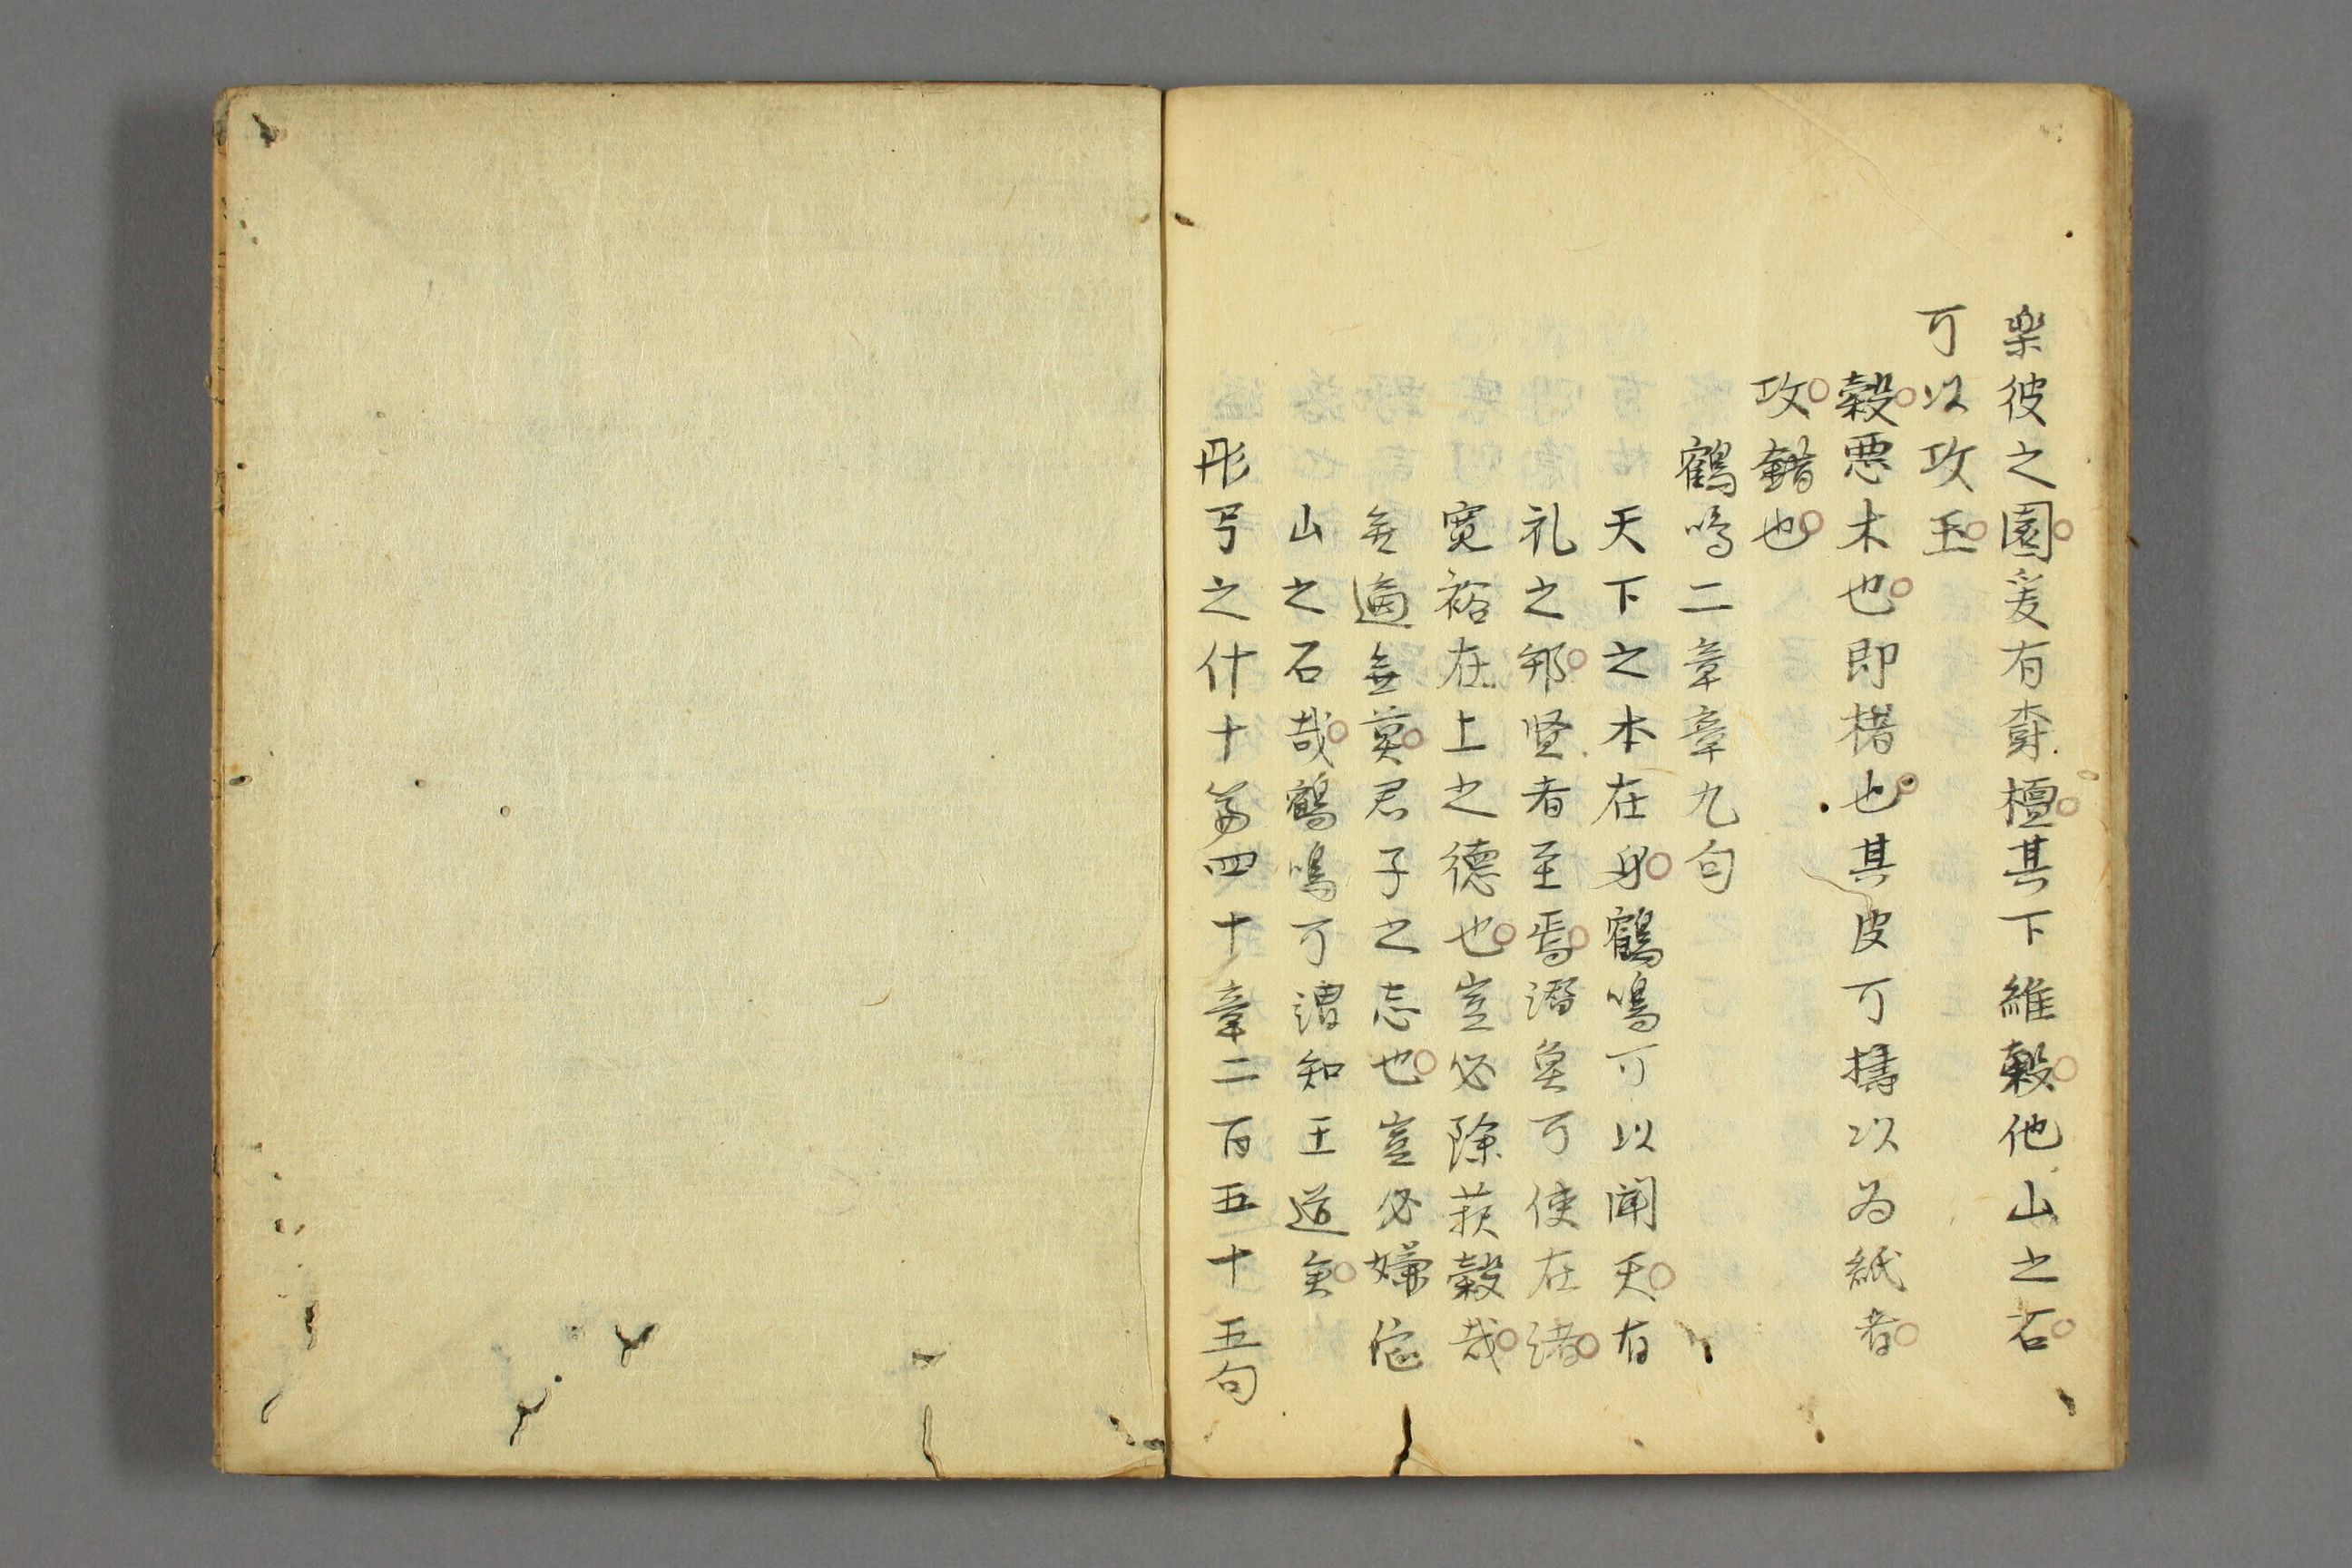 楽彼之園爰有樹檀其下維穀他山之石
可以攻玉
穀悪木也即楮也其皮可擣以為紙者
攻錯也
鶴鳴二章章九句
天下之本在身鶴鳴可以聞天有
礼之邦賢者至焉潜魚可使在渚
寛裕在上之徳也豈必除萚穀哉
無適無莫君子之志也豈必嫌佗
山之石哉鶴鳴可謂知王道矣
彤弓之什十篇四十章二百五十五句